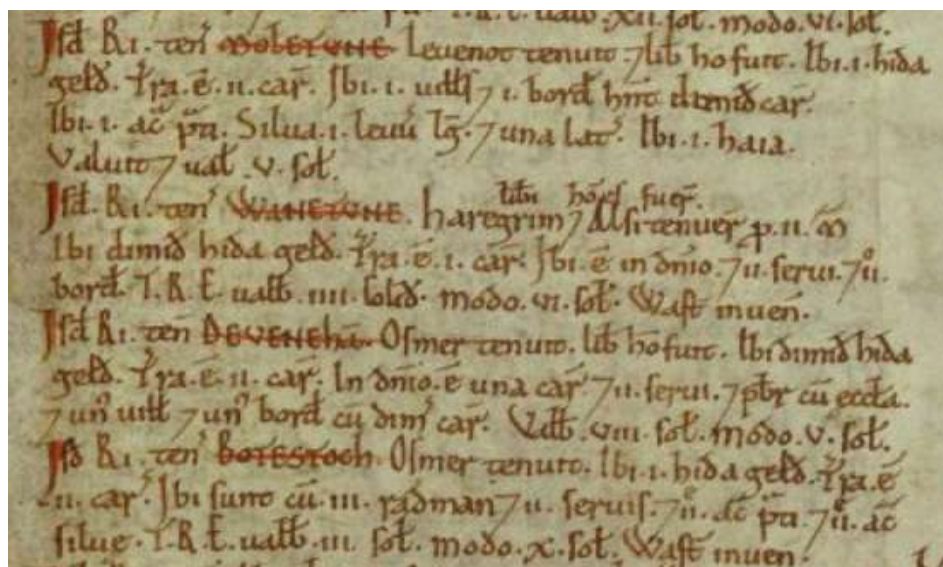 T.R.E. ualb̄. xii. sol. modo. vi. sol.
Isđ Ri. ten̄ MOLETUNE Leuenot tenuit. ⁊ lib̄ ho fuit. Ibi. i. hida
gelđ. Tr̄a. ē. ii. car̄. Ibi. i. uilłs ⁊ i. borđ hn̄t dimiđ car̄.
Ibi. i. ac̄ p̄ti. Silua. i. leuū lḡ. ⁊ una lat̄. Ibi. i. haia.
Valuit ⁊ ual .v. sol.
Isđ. Ri. ten̄ WANETUNE. haregrim ⁊ Alsi tenuer̄ p. ii. M̄
libi hōes fuer̄.
Ibi dimiđ hida gelđ. Tr̄a. ē. i. car̄. Ibi. ē in dn̄io. ⁊ ii. serui. ⁊ ii.
borđ. T.R.E. ualb̄. iiii. soliđ. modo. vi. sol. Wast inuen̄.
Isđ Ri. ten̄ DEVENEHĀ. Osmer tenuit. lib̄ hō fuit. Ibi dimiđ hida
gelđ. Tr̄a. ē. ii. car̄. In dn̄io. ē una car̄ ⁊ ii. serui. ⁊ pb̄r cū eccła.
⁊ un̄ uilł ⁊ un̄ borđ cū dim̄ car̄. Valb̄. viii. sol. modo. v. sol.
Isđ Ri. ten̄ BOTESTOCH. Osmer tenuit. Ibi. i. hida gelđ. Tr̄a. ē
ii. car̄. Ibi sunt cū. iii. radman ⁊ ii. seruis. ⁊ ii. ac̄ p̄ti. ⁊ ii. ac̄
silue. T.R.E. ualb̄. iii. sol. modo. x. sol. Wast inuen̄.